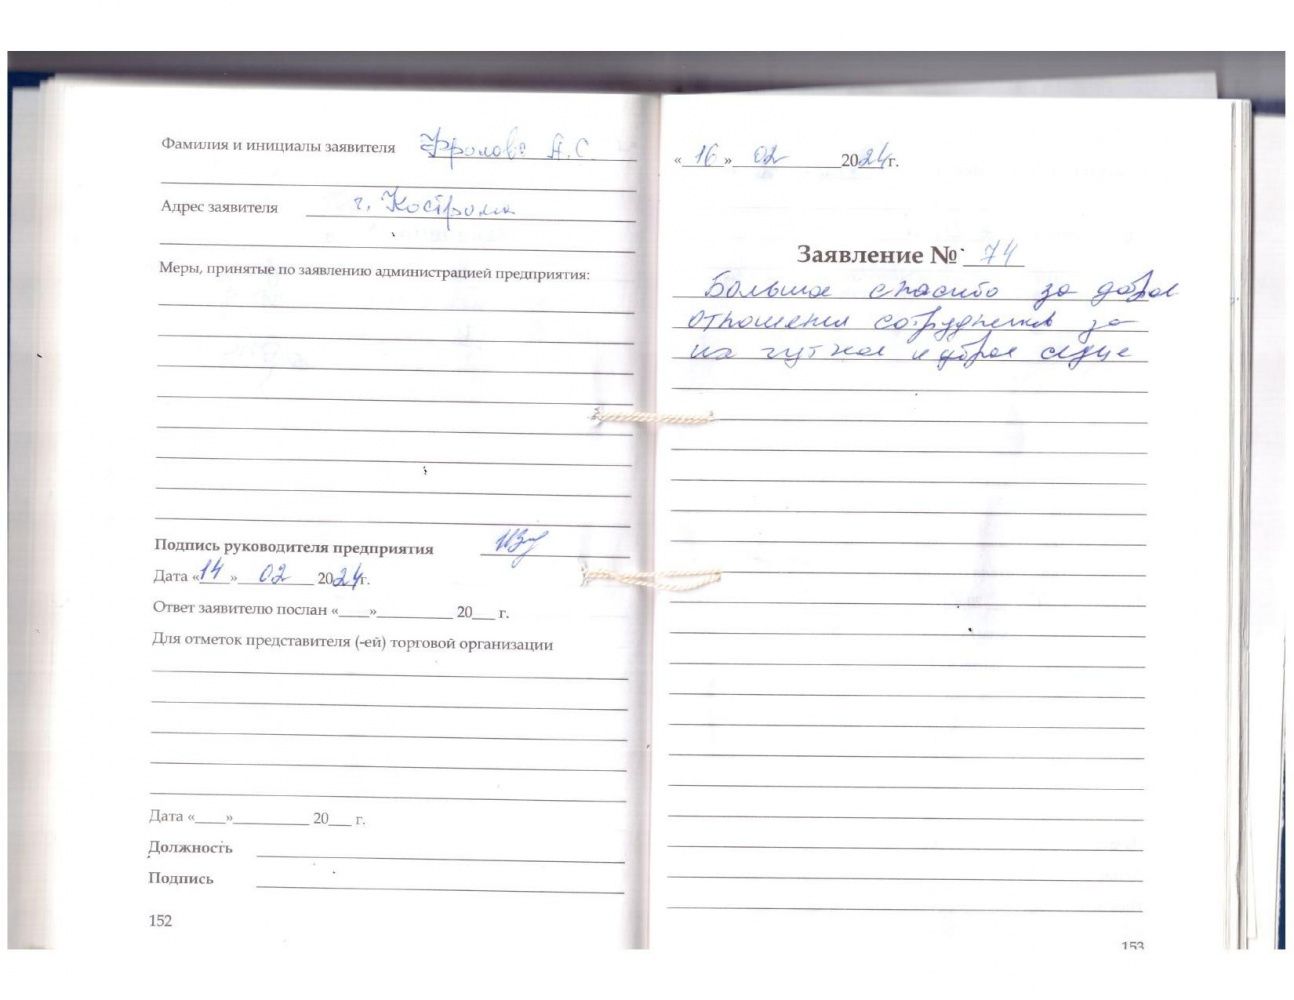 Фамилия и инициалы заявителя Фролова А.С.
Адрес заявителя г. Кострома
Меры, принятые по заявлению администрацией предприятия:
Подпись руководителя предприятия
Дата «14» 02 2024г.
Ответ заявителю послан «____»__________ 20___ г.
Для отметок представителя (-ей) торговой организации
Дата «____»__________ 20___ г.
Должность
Подпись
152
«16» 02 2024г.
Заявление № 74
Большое спасибо за доброе
отношения сотрудников за
их чуткое и доброе сердце
153